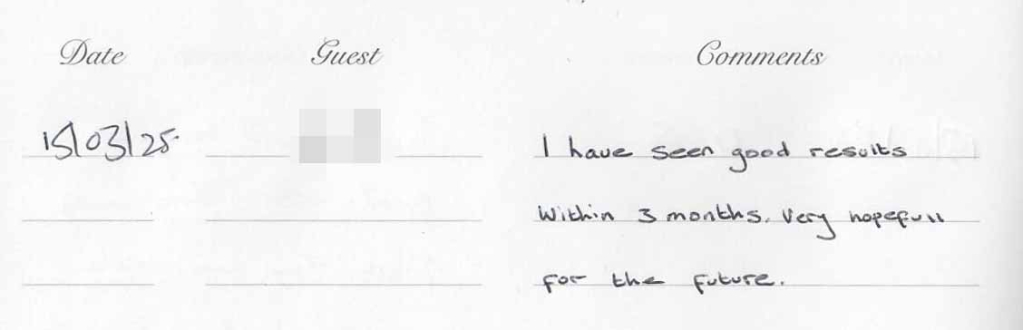 Date Guest Comments
15/03/25 I have seen good results
Within 3 months. Very hopefull
for the future.